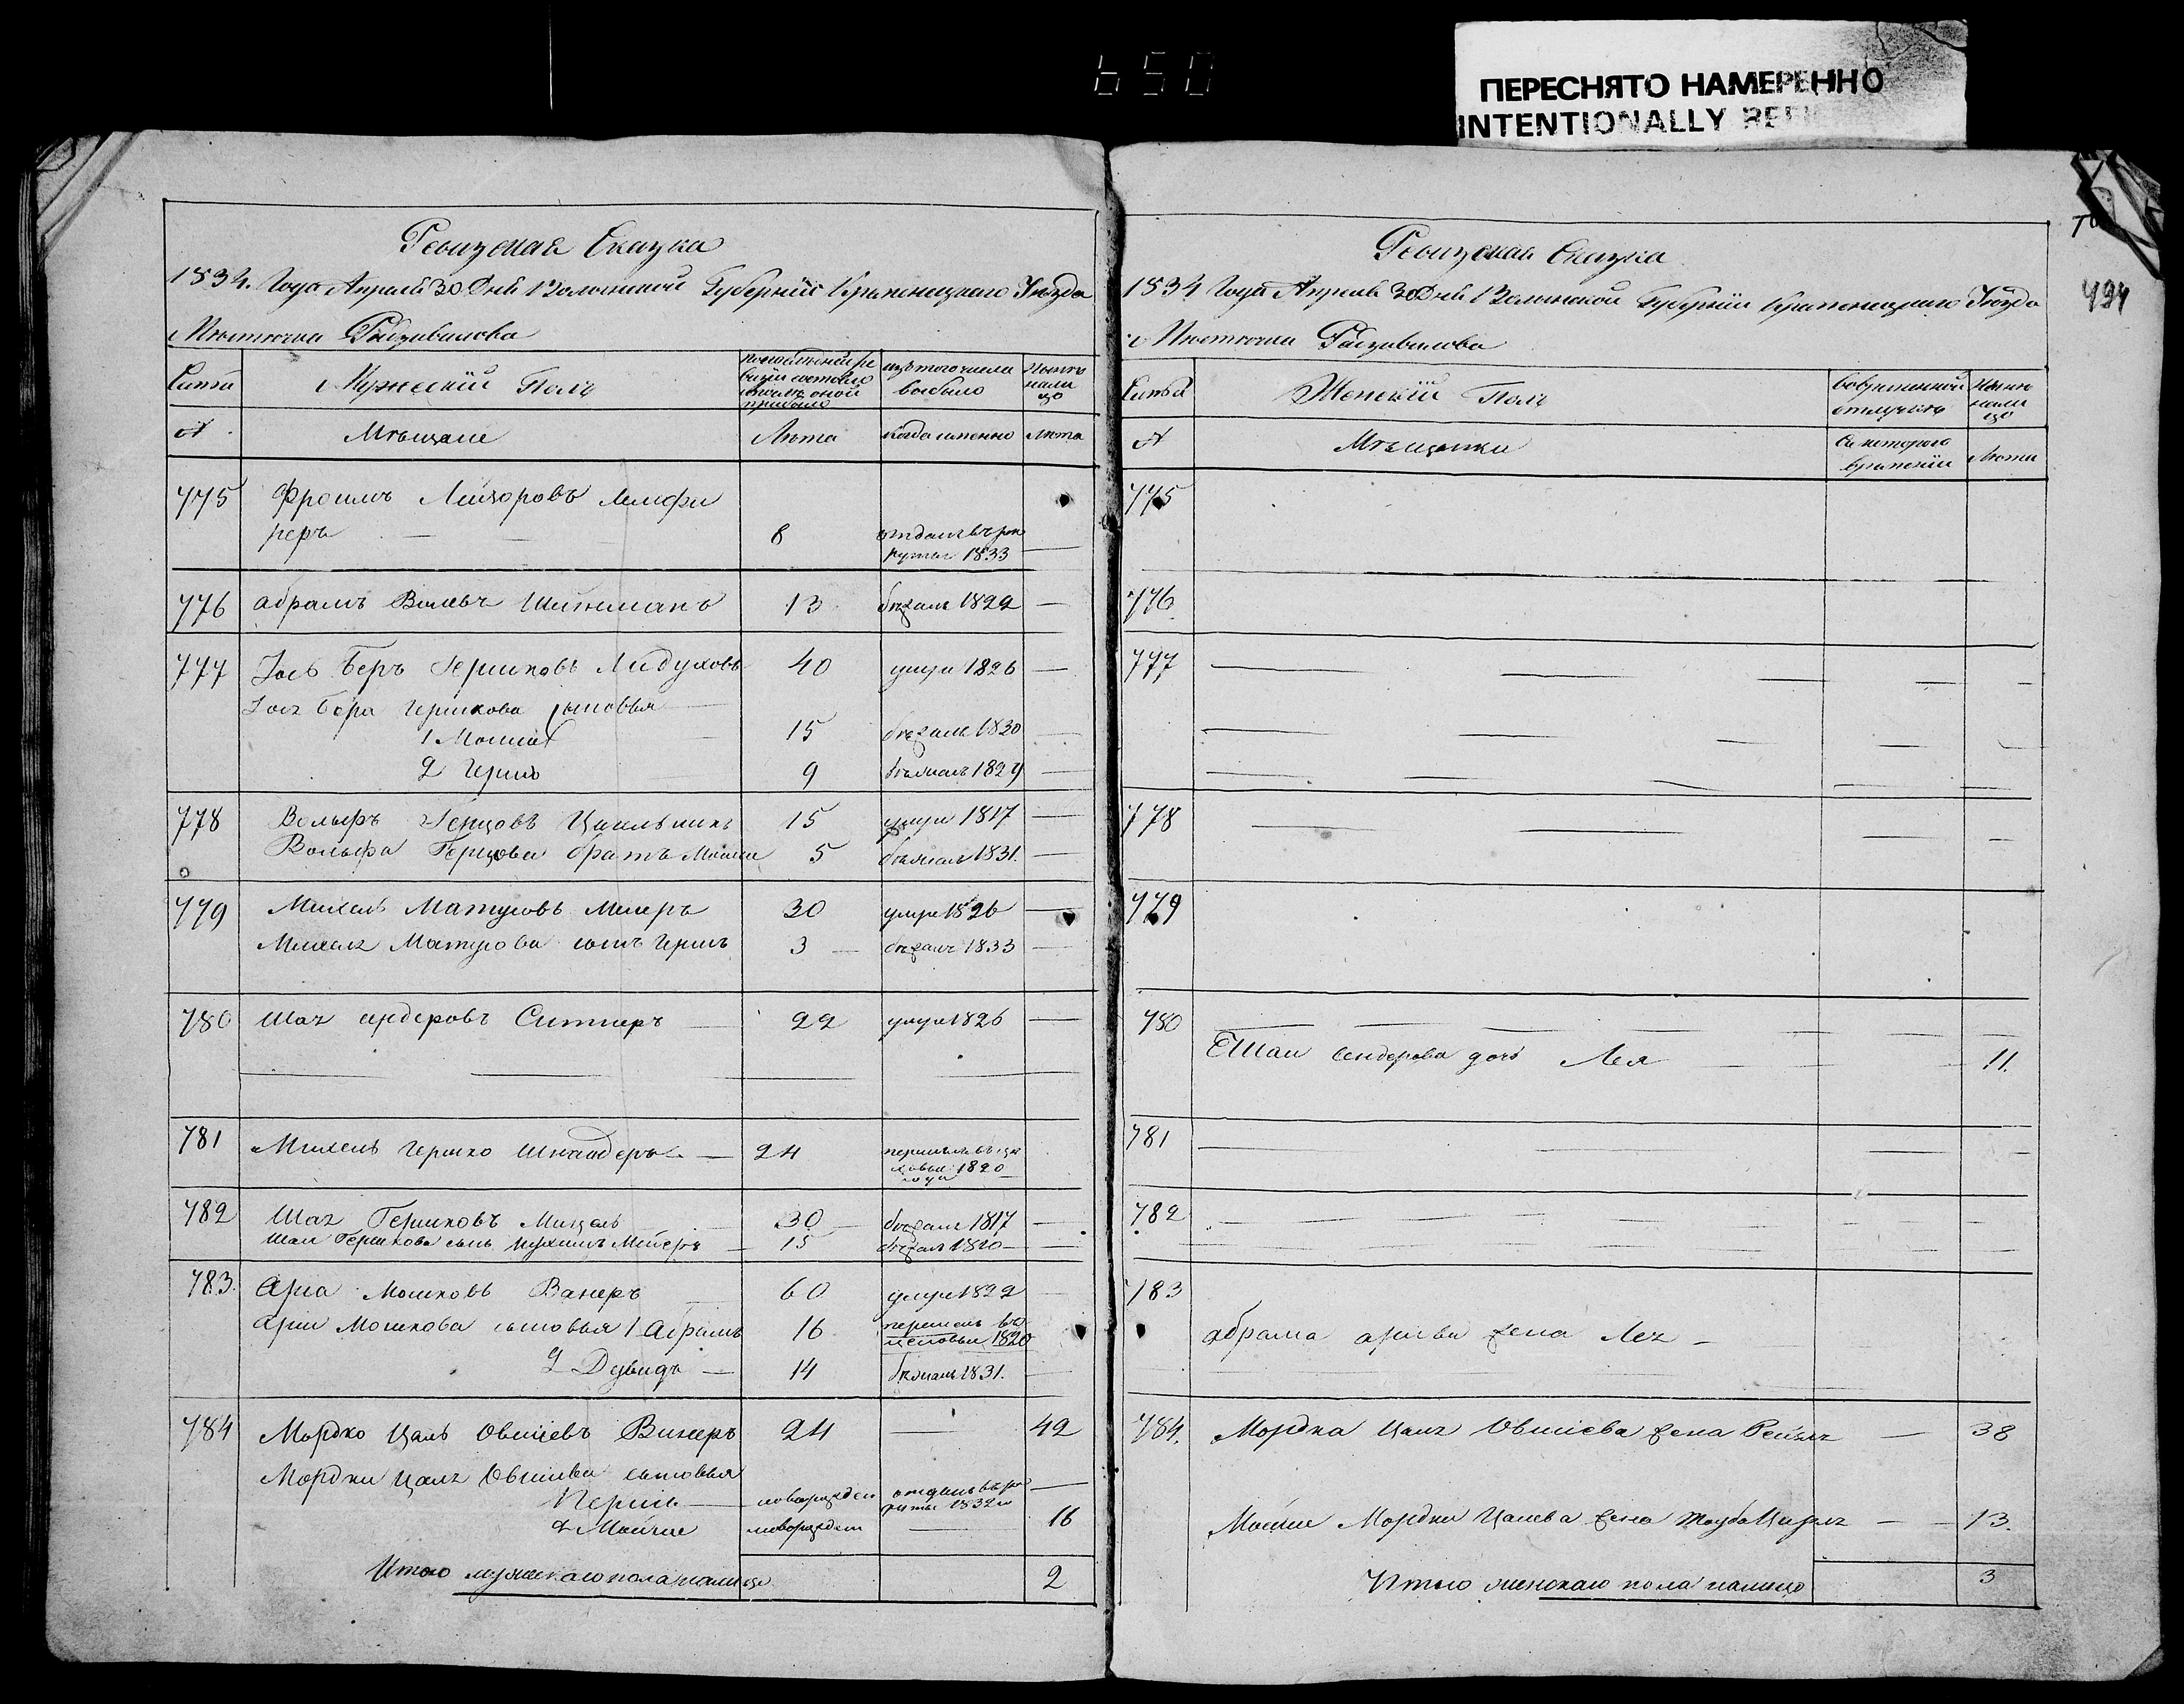 650
ПЕРЕСНЯТО НАМЕРЕННО
INTENTIONALLY
494
Ревизская Сказка
1834. Года Апреля 30 Дня Волынской Губернии Кременецкаго Уѣзда
Мѣстечка Радзивилова
Семьи
Мужескій Полъ
По последней ре
визіи состояло
и после оной
прибыло
изъ того числа
выбыло
Нынѣ
нали
цо
№
Мѣщане
Лѣта
Когда именно
Лѣта
775
Фроимъ Лейзоровъ
8
отданъ въ рек
руты 1833
776 Абрамъ Вольвъ Шейнманъ 13 бѣжалъ 1822 —
777 Іось Беръ Гершковъ Лидуховъ 40 умре 1826 —
Іось Бера Гершкова сыновья
1 Мошко 15 бѣжалъ 1830 —
2 Гершъ 9 бѣжалъ 1829 —
778 Вольфъ Герцовъ 15 умре 1817 —
Вольфа Герцова братъ Мошко 5 бѣжалъ 1831. —
779 Михель Матусовъ Мелеръ 30 умре 1826 —
Михель Матусова сынъ Гершъ 3 — бѣжалъ 1833 —
780 Шая Сендеровъ Ситнеръ 22 умре 1826 —
781 Михель Гершко Шнайдеръ — 24
перешелъ въ це
ховые 1820
года
782 Шая Гершковъ 30 — бѣжалъ 1817 —
Шаи Гершкова сынъ Нухимъ Мейеръ — 15 бѣжалъ 1820 —
783. Аріа Мошковъ Ванеръ 60 умре 1822
Аріи Мошкова сыновья 1 Абрамъ 16
перешелъ въ
цеховые 1820
2 Дувидъ — 14 бѣжалъ 1831.
784 Мордко Цаль Овшіевъ Винеръ 24 — 42
Мордки Цаля Овшіева сыновья
новорожден
отданъ въ рек
руты 1832 —
2 Мойше новорожден — 16
Итого мужескаго пола налицо 2
Ревизская Сказка
1834 Года Апреля 30 Дня Волынской Губерніи Кременецкаго Уѣзда
Мѣстечка Радзивилова
Семьи
Женскій Полъ
Во временной
отлучкѣ
Нынѣ
нали
цо
№
Мѣщанки
Съ котораго
времени
Лѣта
775
776
777
778
779
780
Шаи Сендерова дочь Лея 11.
781
782
783
Абрама Аріева жена Лея —
784. Мордка Цаля Овшіева жена Рейзя — 38
Мойше Мордки Цалева жена Тауба Цирля — 13.
Итого женскаго пола налицо 3